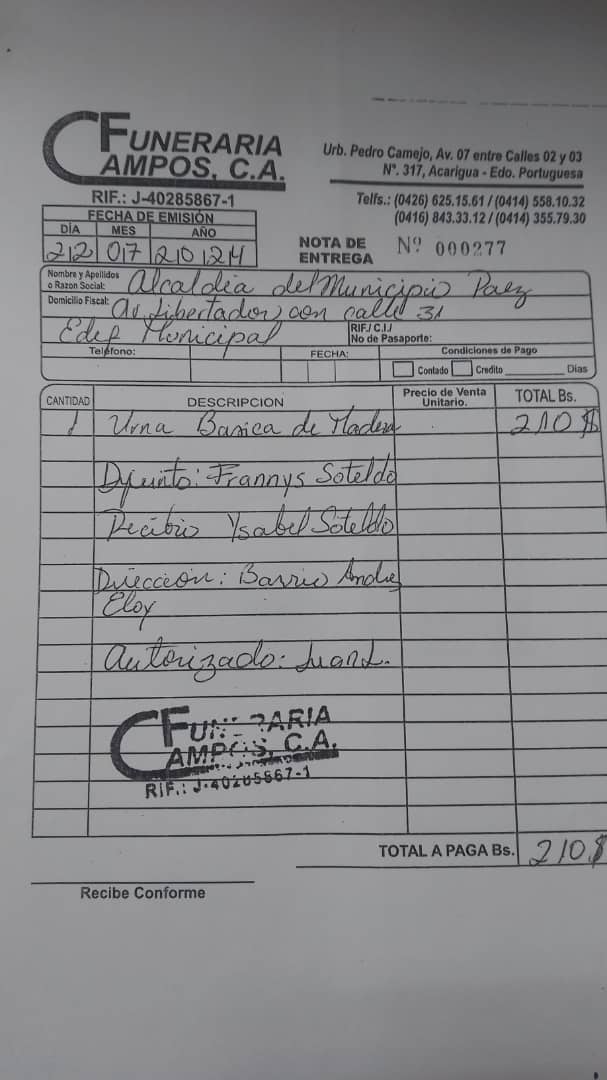 FUNERARIA
CAMPOS, C.A.
RIF.: J-40285867-1
Urb. Pedro Camejo, Av. 07 entre Calles 02 y 03
N°. 317, Acarigua - Edo. Portuguesa
Telfs.: (0426) 625.15.61 / (0414) 558.10.32
(0416) 843.33.12 / (0414) 355.79.30
FECHA DE EMISIÓN
DÍA MES AÑO
22 07 2024
NOTA DE ENTREGA Nº 000277
Nombre y Apellidos o Razon Social: Alcaldia del Municipio Paez
Domicilio Fiscal: Av. Libertador con calle 31
Edif Municipal
RIF./ C.I./ No de Pasaporte:
Teléfono: FECHA: Condiciones de Pago
Contado Credito Dias
CANTIDAD DESCRIPCION Precio de Venta Unitario. TOTAL Bs.
1 Urna Basica de Madera 210 $
Difunto: Frannys Soteldo
Recibio Ysabel Soteldo
Direccion: Barrio Andres
Eloy
Autorizado: Juan L.
FUNERARIA
CAMPOS, C.A.
RIF.: J-40285867-1
TOTAL A PAGA Bs. 210 $
Recibe Conforme